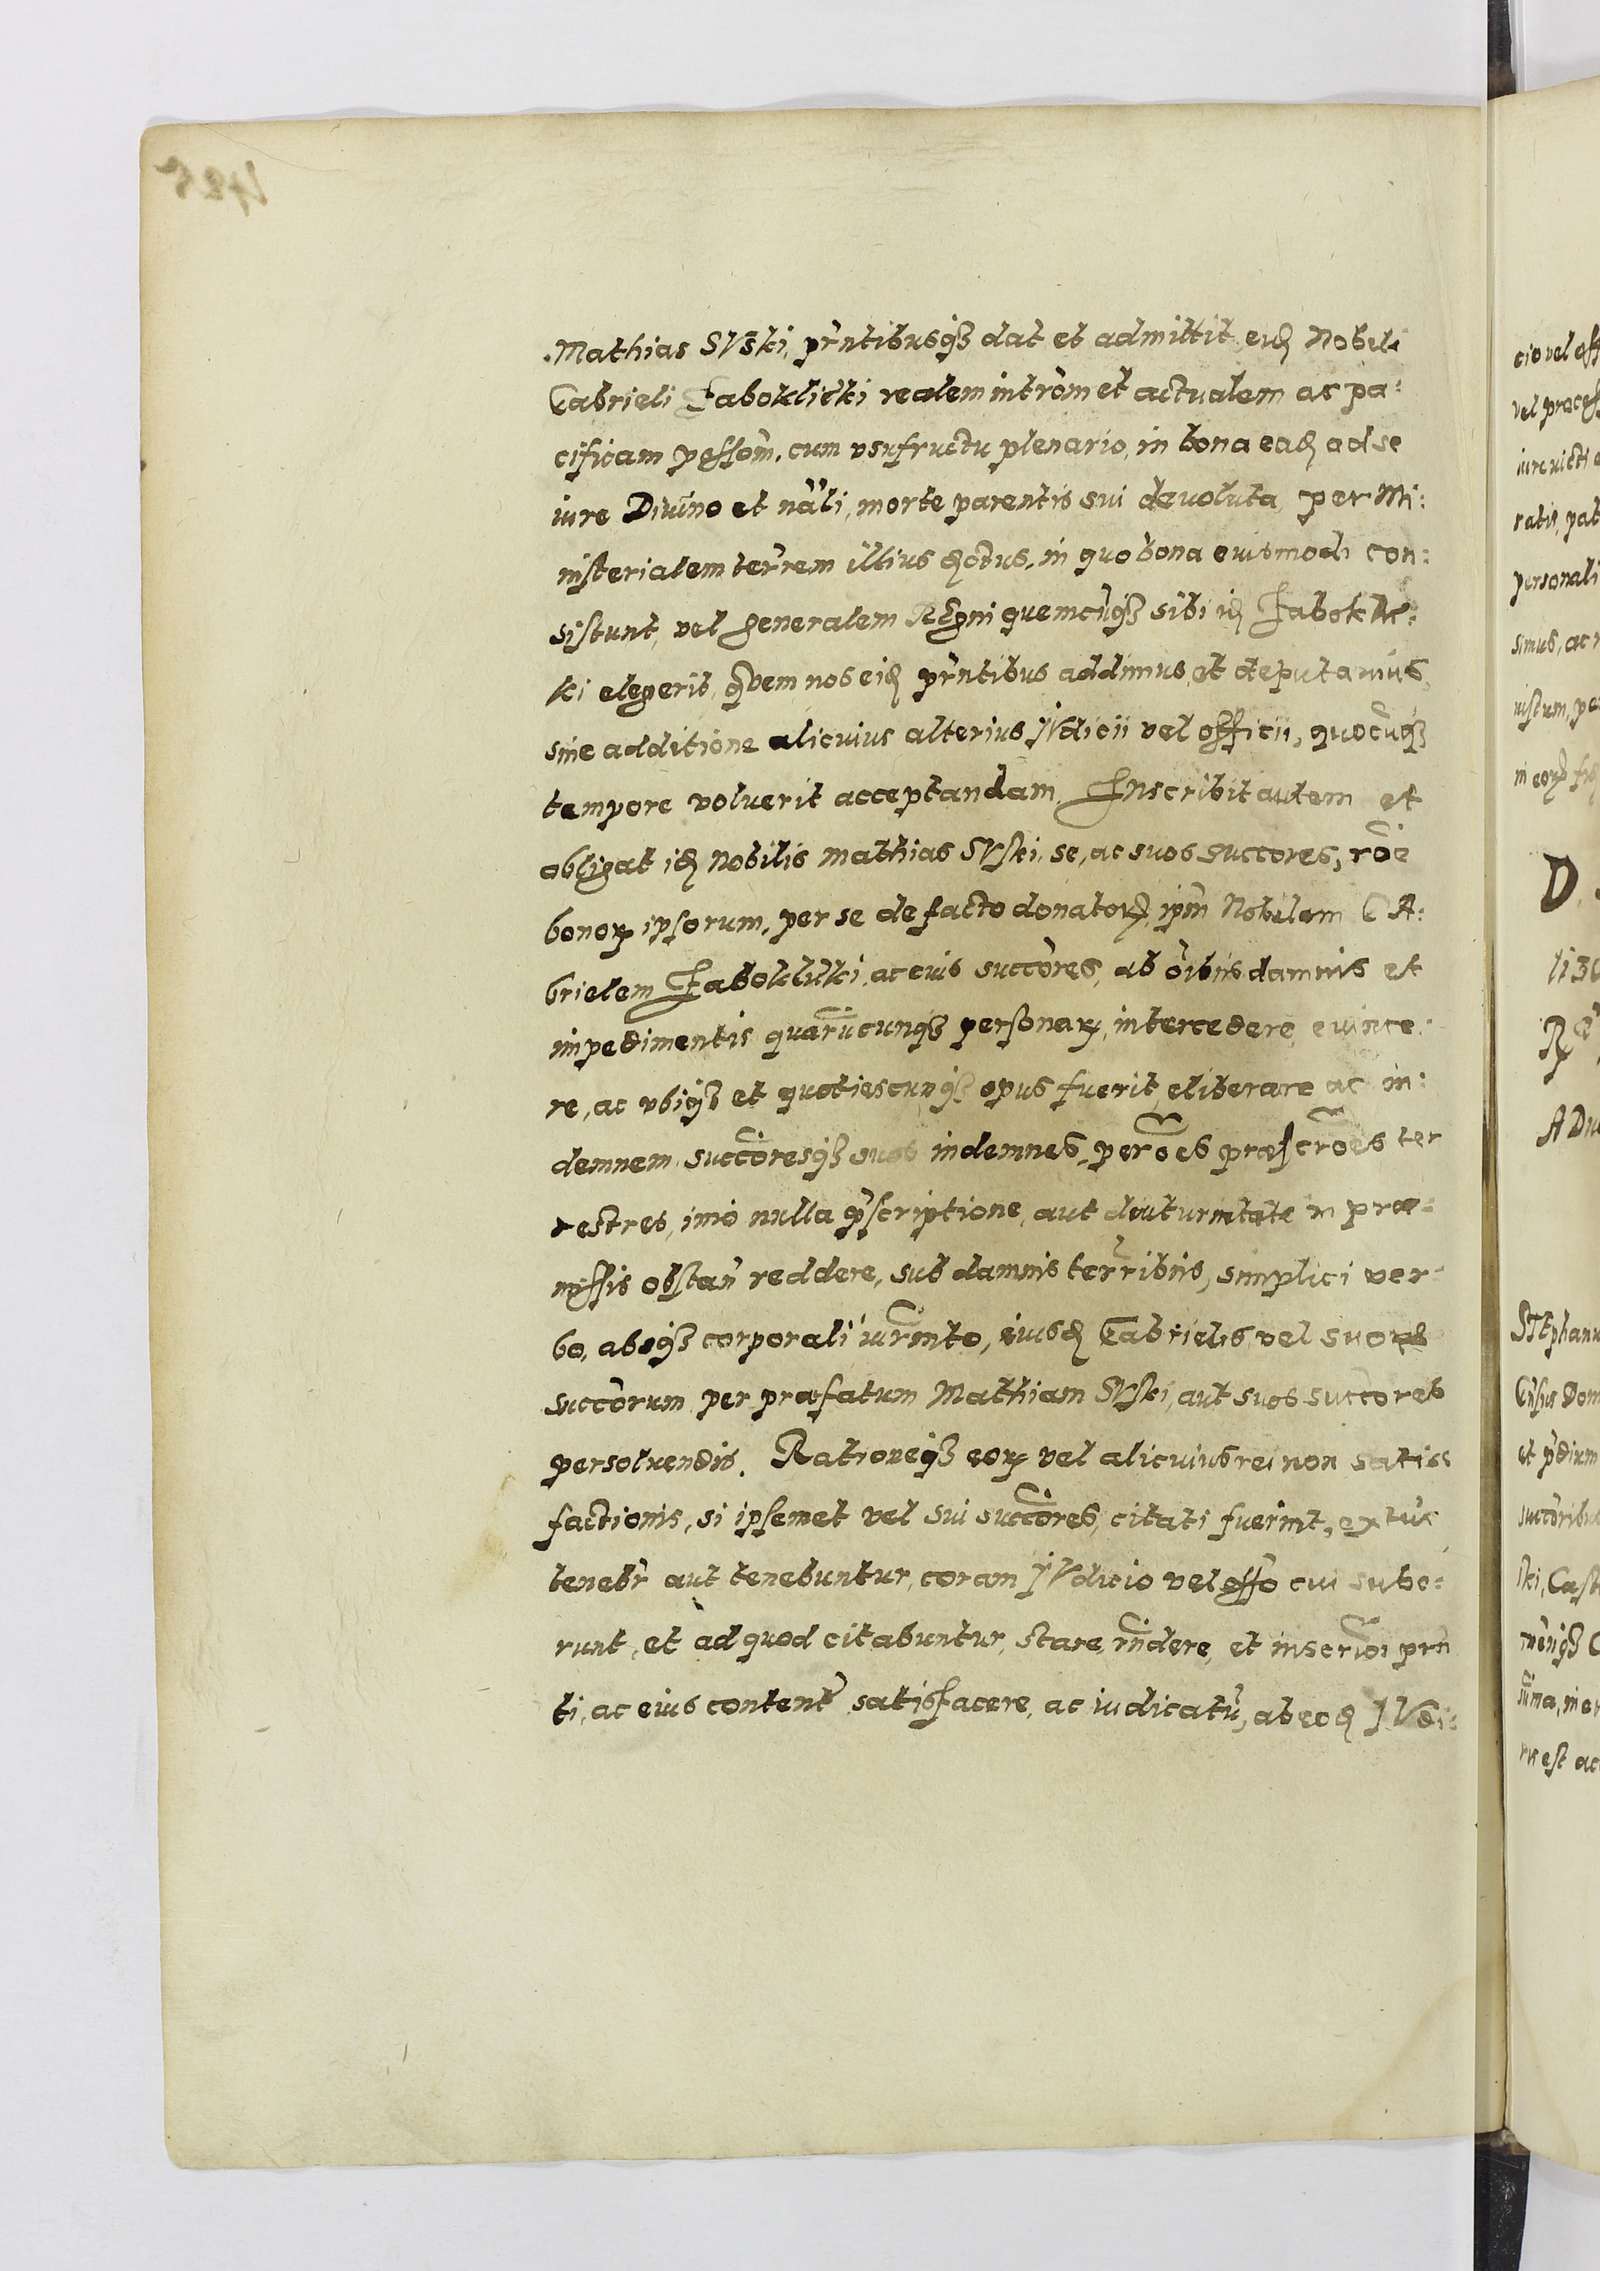 Mathias SVski, prntibusq3 dat et admittit, eid Nobili
Gabrieli Jaboklicki realem introm et actualem ac pa:
cificam possom, cum vsufructu plenario, in bona ead ad se
iure Diuino et nali, morte parentis sui deuoluta, per Mi:
nisterialem terrem illius dctus, in quo bona euismodi con:
sistunt, vel generalem REgni quemcunq3 sibi id Jabokli:
ki elegerit, quem nos eid prntibus addimus, et deputamus,
sine additione alicuius alterius JVdicii vel officii, quocunq3
tempore voluerit acceptandam. Inscribit autem et
obligat id Nobilis Mathias SVski, se, ac suos succores, roe
bonor ipsorum, per se de facto donator, ipm Nobilem GA:
brielem Jaboklicki, ac eius succores, ab oibus damnis et
impedimentis quarucunq3 personar, intercedere, euince:
re, ac vbiq3 et quotiescunq3 opus fuerit, eliberare ac in:
demnem, succoresq3 suos indemnes, per oes præscroes ter
restres, imo nulla pscriptione, aut diuturnitate in præ:
missis obstan reddere, sub damnis terribus, simplici ver:
bo, absq3 corporali iurmnto, eiusd Gabrielis, vel suor
succorum per præfatum Mathiam SVski, aut suos succores
persoluendis. Rationeq3 eor vel alicuius rei non satis
factionis, si ipsemet vel sui succores, citati fuerint, extuc
tenebr aut tenebuntur, coram JVdicio vel offo cui sube:
runt, et ad quod citabuntur, stare, rndere, et inscroi prn
ti, ac eius content satisfacere, ac iudicatu, ab eod JVdi: